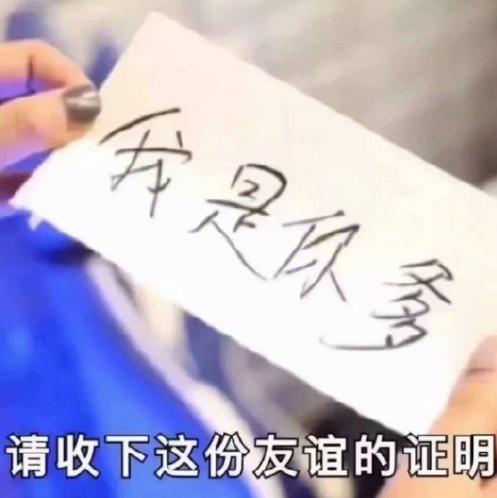 我是你多
请收下这份友谊的证明